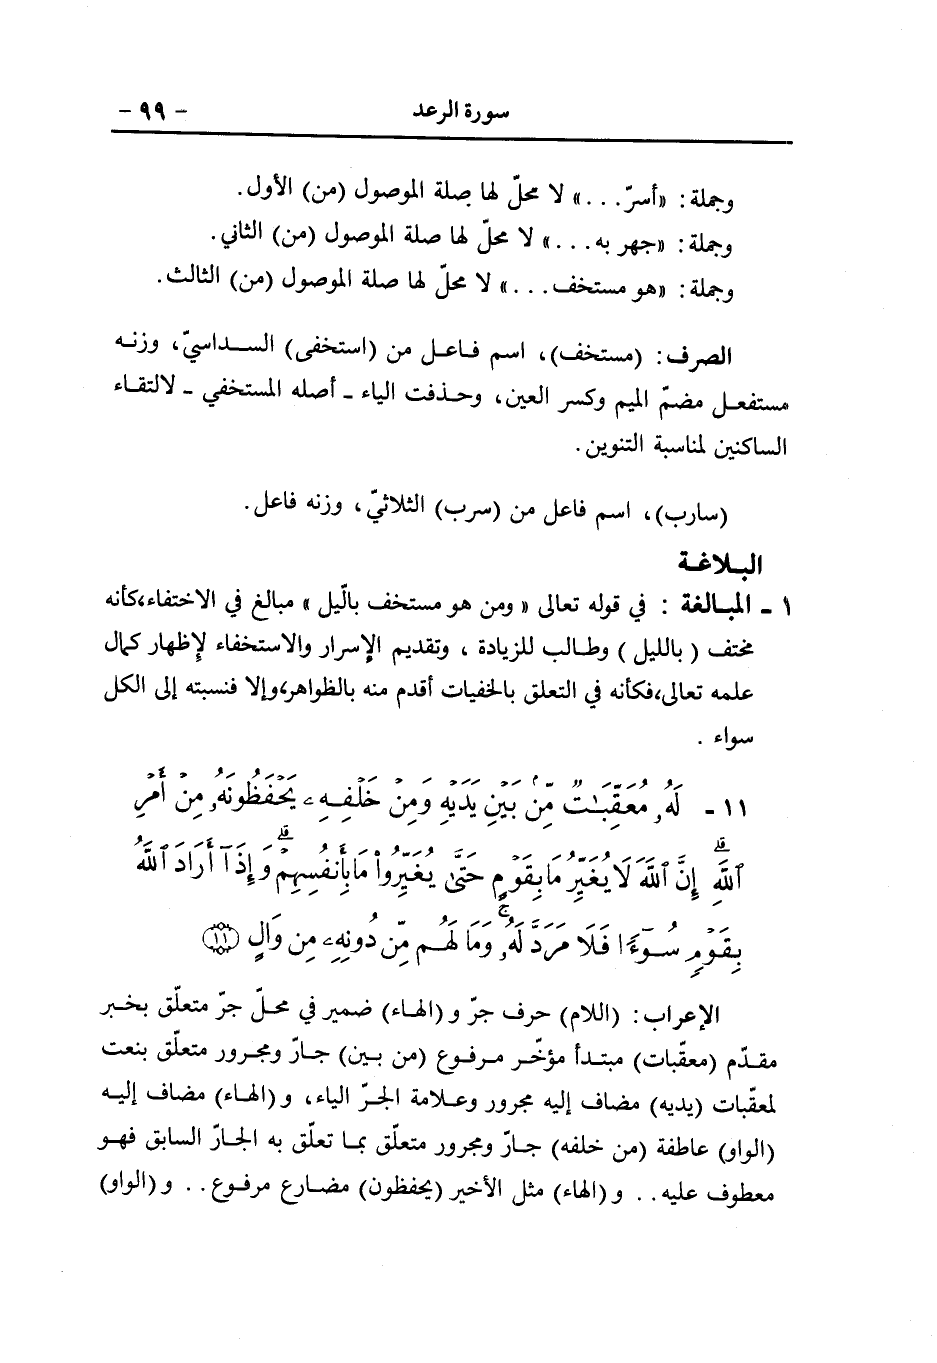 سورة الرعد - ٩٩ -
وجملة: «أسرّ. . .» لا محلّ لها صلة الموصول (من) الأول.
وجملة: «جهر به. . .» لا محلّ لها صلة الموصول (من) الثاني.
وجملة: «هو مستخف. . .» لا محلّ لها صلة الموصول (من) الثالث.
الصرف: (مستخف)، اسم فاعل من (استخفى) السداسيّ، وزنه
مستفعل مضمّ الميم وكسر العين، وحذفت الياء ـ أصله المستخفي ـ لالتقاء
الساكنين لمناسبة التنوين.
(سارب)، اسم فاعل من (سرب) الثلاثيّ، وزنه فاعل.
البلاغة
١ ـ المبالغة : في قوله تعالى « ومن هو مستخف بالّيل » مبالغ في الاختفاء،كأنه
مختف ( بالليل ) وطالب للزيادة ، وتقديم الإسرار والاستخفاء لإظهار كمال
علمه تعالى،فكأنه في التعلق بالخفيات أقدم منه بالظواهر،وإلا فنسبته إلى الكل
سواء .
١١ - لَهُۥ مُعَقِّبَـٰتٌ مِّنۢ بَيْنِ يَدَيْهِ وَمِنْ خَلْفِهِۦ يَحْفَظُونَهُۥ مِنْ أَمْرِ
ٱللَّهِ ۗ إِنَّ ٱللَّهَ لَا يُغَيِّرُ مَا بِقَوْمٍ حَتَّىٰ يُغَيِّرُوا۟ مَا بِأَنفُسِهِمْ ۗ وَإِذَآ أَرَادَ ٱللَّهُ
بِقَوْمٍ سُوٓءًا فَلَا مَرَدَّ لَهُۥ ۚ وَمَا لَهُم مِّن دُونِهِۦ مِن وَالٍ ﴿١١﴾
الإعراب: (اللام) حرف جرّ و(الهاء) ضمير في محلّ جرّ متعلّق بخبر
مقدّم (معقّبات) مبتدأ مؤخّر مرفوع (من بين) جارّ ومجرور متعلّق بنعت
لمعقّبات (يديه) مضاف إليه مجرور وعلامة الجرّ الياء، و(الهاء) مضاف إليه
(الواو) عاطفة (من خلفه) جارّ ومجرور متعلّق بما تعلّق به الجارّ السابق فهو
معطوف عليه. . و(الهاء) مثل الأخير (يحفظون) مضارع مرفوع. . و(الواو)